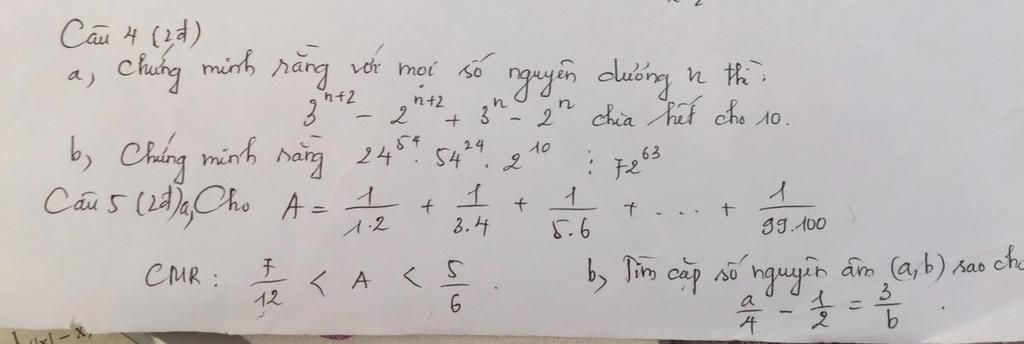 Câu 4 (2đ)
a, Chứng minh rằng với mọi số nguyên dương n thì:
3^{n+2} - 2^{n+2} + 3^n - 2^n chia hết cho 10.
b, Chứng minh rằng 24^{54} . 54^{24} . 2^{10} ⋮ 72^{63}
Câu 5 (2đ) a, Cho A = 1/1.2 + 1/3.4 + 1/5.6 + ... + 1/99.100
CMR: 7/12 < A < 5/6. b, Tìm cặp số nguyên âm (a,b) sao cho
a/4 - 1/2 = 3/b.